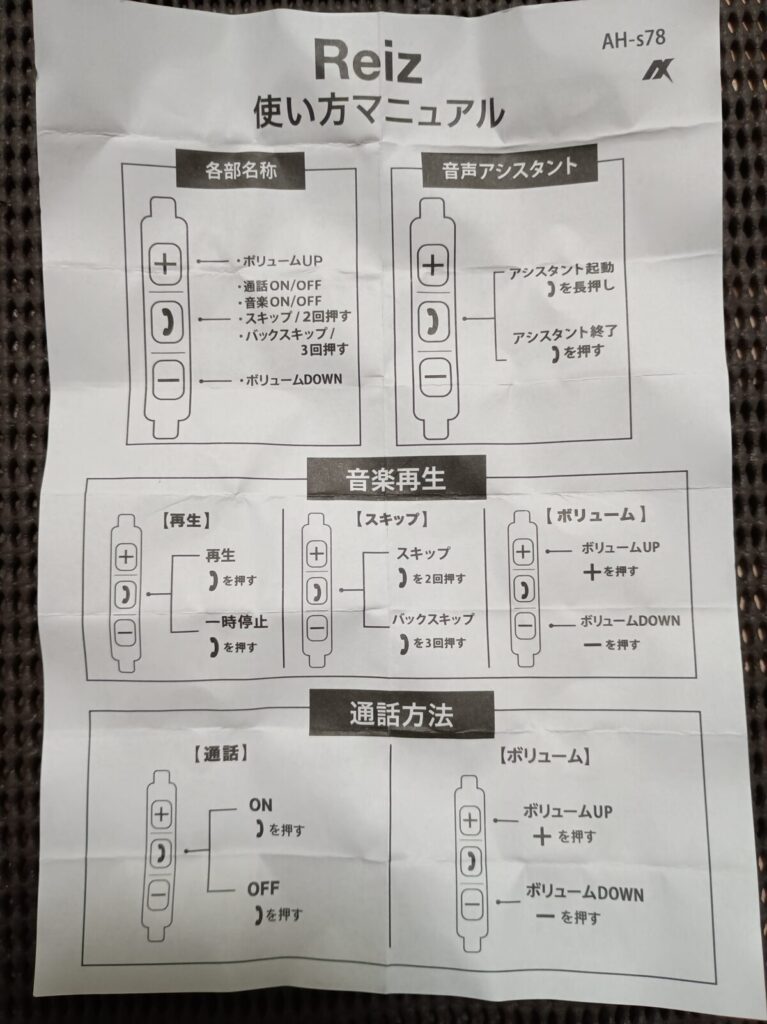 AH-s78
Reiz
使い方マニュアル
各部名称
+
・ボリュームUP
・通話ON/OFF
・音楽ON/OFF
・スキップ/2回押す
・バックスキップ/
3回押す
−
・ボリュームDOWN
音声アシスタント
+
アシスタント起動
を長押し
アシスタント終了
を押す
−
音楽再生
【再生】
+
再生
を押す
一時停止
を押す
−
【スキップ】
+
スキップ
を2回押す
バックスキップ
を3回押す
−
【ボリューム】
+
ボリュームUP
+を押す
−
ボリュームDOWN
−を押す
通話方法
【通話】
+
ON
を押す
OFF
を押す
−
【ボリューム】
+
ボリュームUP
+を押す
−
ボリュームDOWN
−を押す